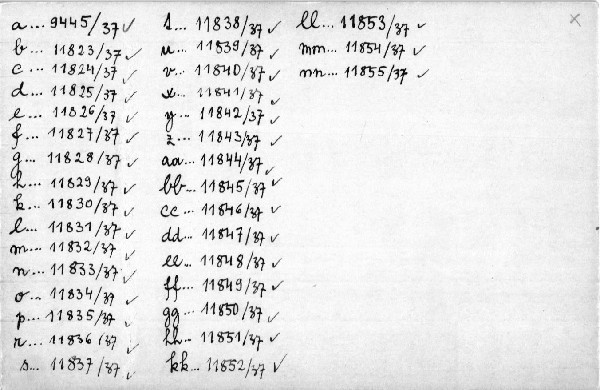 a... 9445/37 ✓
b... 11823/37 ✓
c... 11824/37 ✓
d... 11825/37 ✓
e... 11826/37 ✓
f... 11827/37 ✓
g... 11828/37 ✓
h... 11829/37 ✓
k... 11830/37 ✓
l... 11831/37 ✓
m... 11832/37 ✓
n... 11833/37 ✓
o... 11834/37 ✓
p... 11835/37 ✓
r... 11836/37 ✓
s... 11837/37 ✓
t... 11838/37 ✓
u... 11839/37 ✓
v... 11840/37 ✓
x... 11841/37 ✓
y... 11842/37 ✓
z... 11843/37 ✓
aa... 11844/37 ✓
bb... 11845/37 ✓
cc... 11846/37 ✓
dd... 11847/37 ✓
ee... 11848/37 ✓
ff... 11849/37 ✓
gg... 11850/37 ✓
hh... 11851/37 ✓
kk... 11852/37 ✓
ll... 11853/37 ✓
mm... 11854/37 ✓
nn... 11855/37 ✓
x